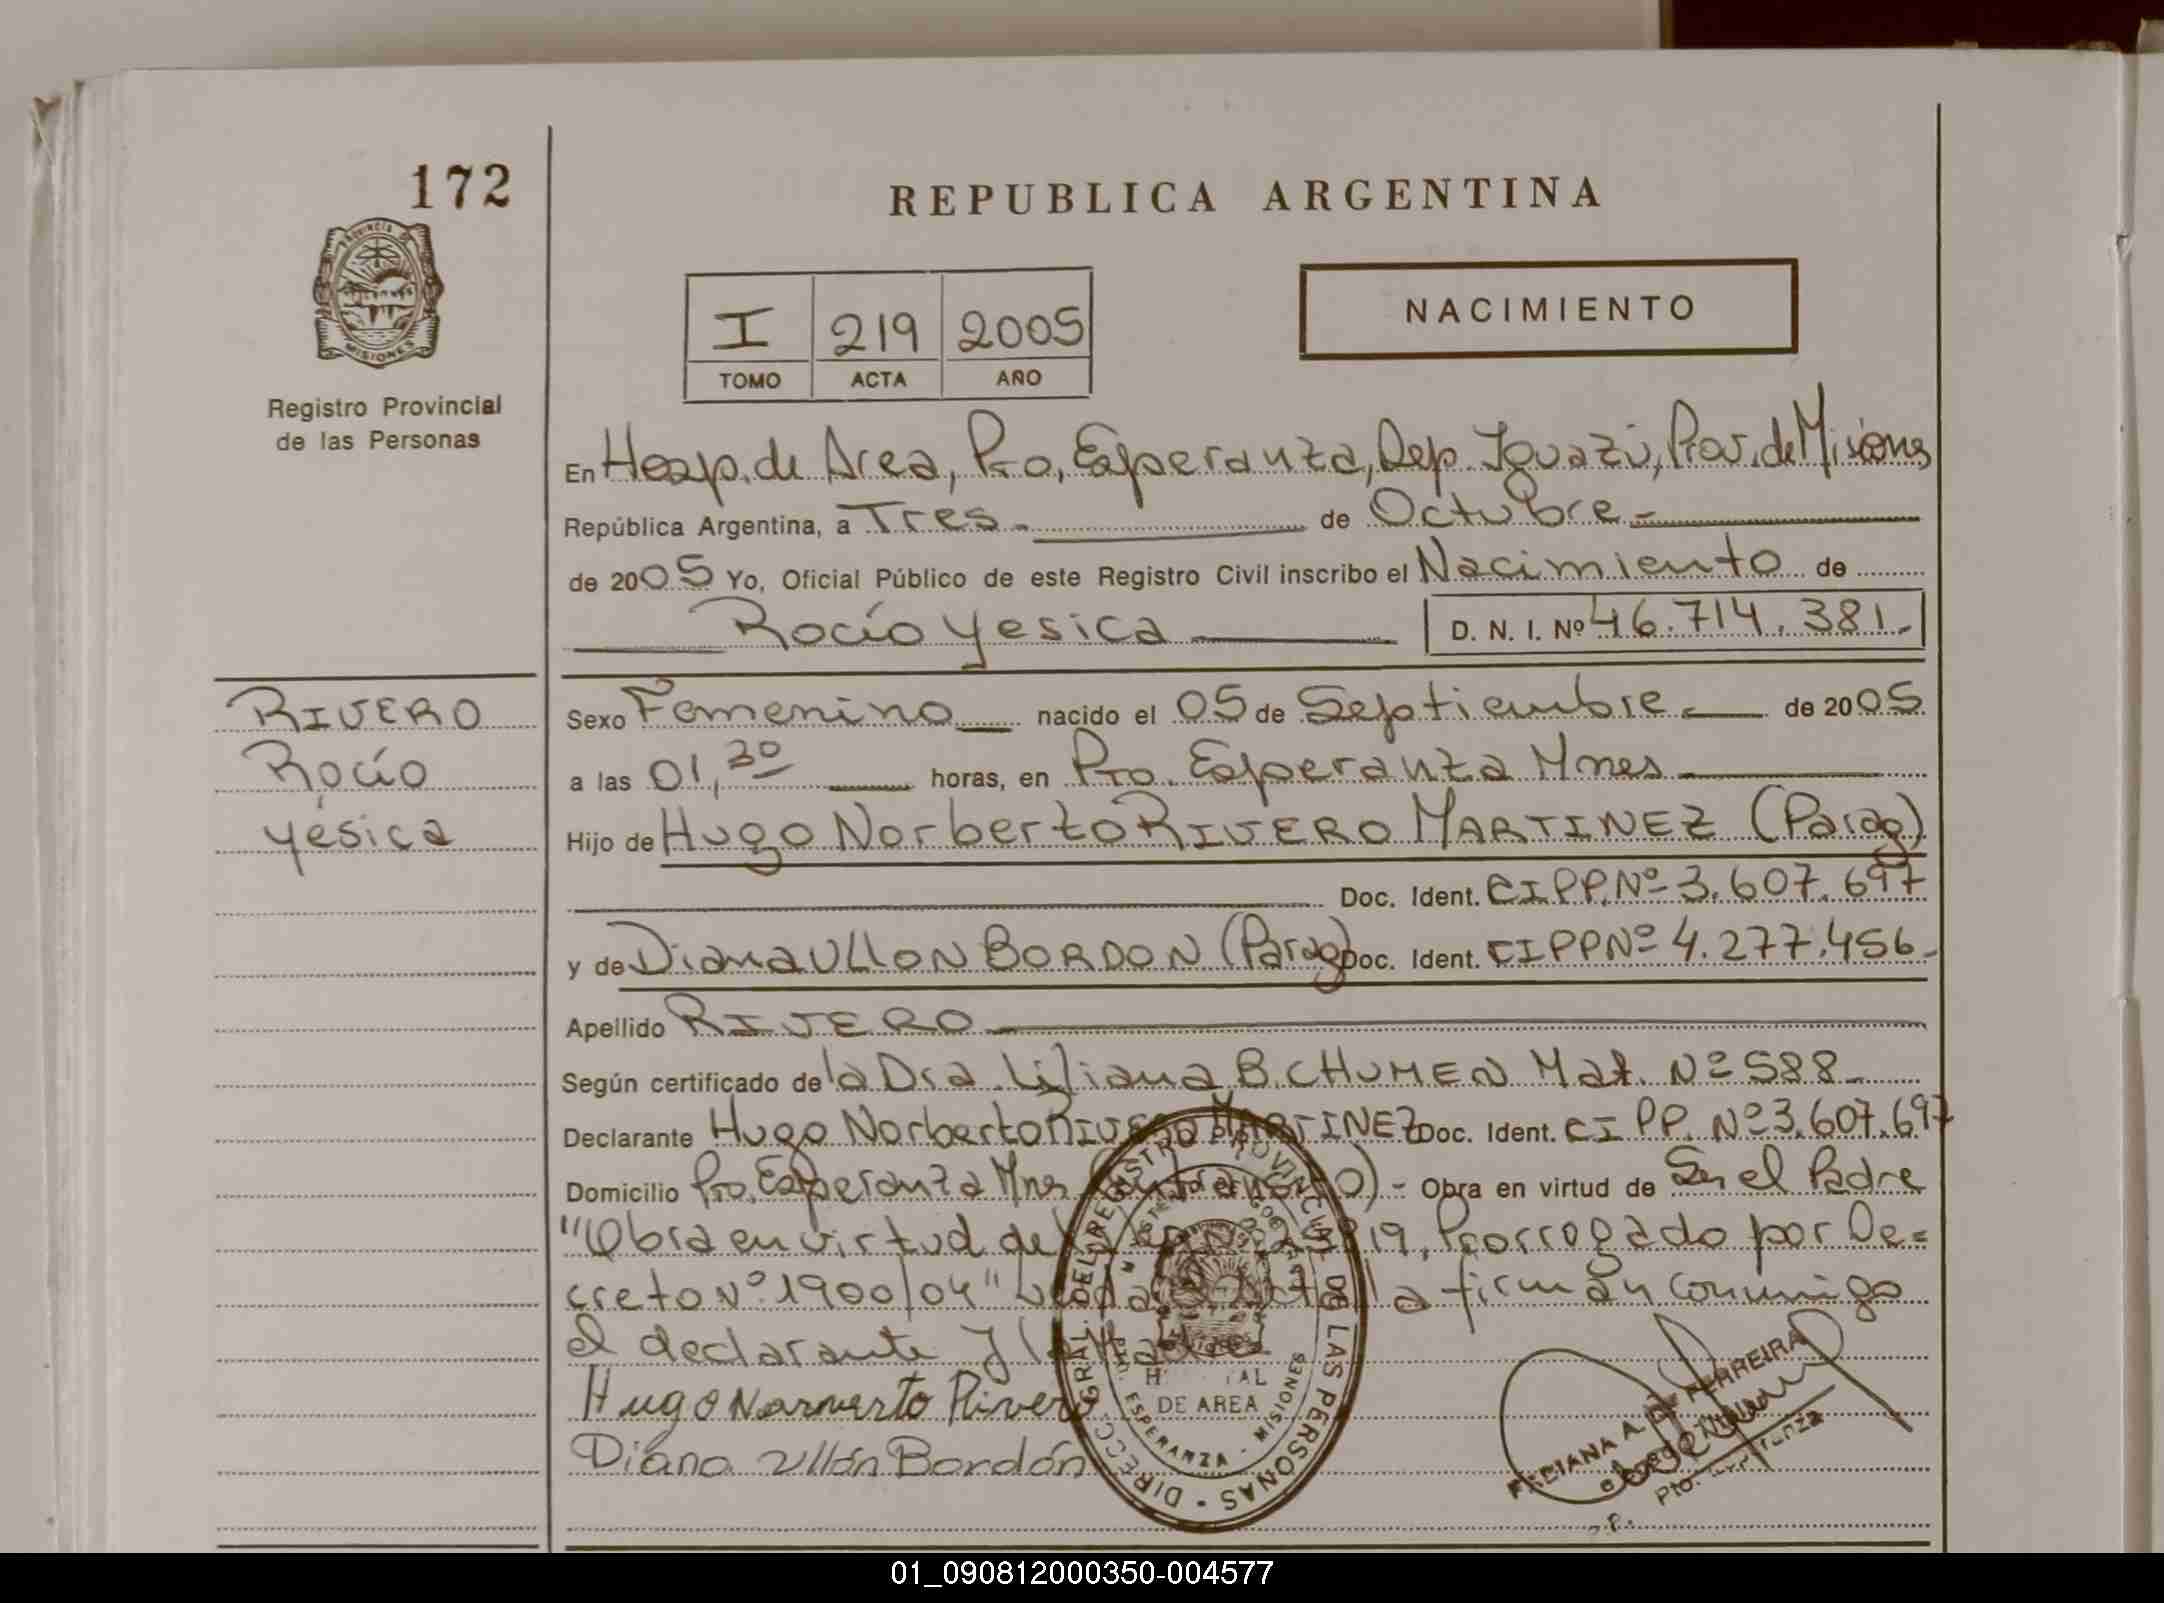 172
REPUBLICA ARGENTINA
PROVINCIA DE
MISIONES
Registro Provincial
de las Personas
I 219 2005
TOMO ACTA AÑO
NACIMIENTO
En Hosp. de Area, Pto, Esperanza, Dep. Iguazú, Prov. de Misiones
República Argentina, a Tres.- de Octubre -
de 2005 Yo, Oficial Público de este Registro Civil inscribo el Nacimiento de
Rocío Yesica D. N. I. Nº 46.714.381.-
RIVERO
Rocío
Yesica
Sexo Femenino nacido el 05 de Septiembre de 2005
a las 01,30 horas, en Pto. Esperanza Mnes
Hijo de Hugo Norberto RIVERO MARTINEZ (Parag)
Doc. Ident. CI.P.P. Nº 3.607.697
y de Diana ULLON BORDON (Parag) Doc. Ident. CIPP Nº 4.277.456-
Apellido RIVERO
Según certificado de la Dra. Liliana B. CHUMEN Mat. Nº 588-
Declarante Hugo Norberto RIVERO MARTINEZ Doc. Ident. CI PP. Nº 3.607.697
Domicilio Pto. Esperanza Mnes - Obra en virtud de Ser el Padre
"Obra en virtud de 819, Prorrogado por De=
creto Nº 1900/04" firman conmigo
el declarante y la
Hugo Norverto Rivero
Diana Ullón Bordón
DIRECC. GRAL. DEL REGISTRO PROVINCIAL DE LAS PERSONAS
DE AREA
ESPERANZA - MISIONES
FERREIRA
Pto.
01_090812000350-004577